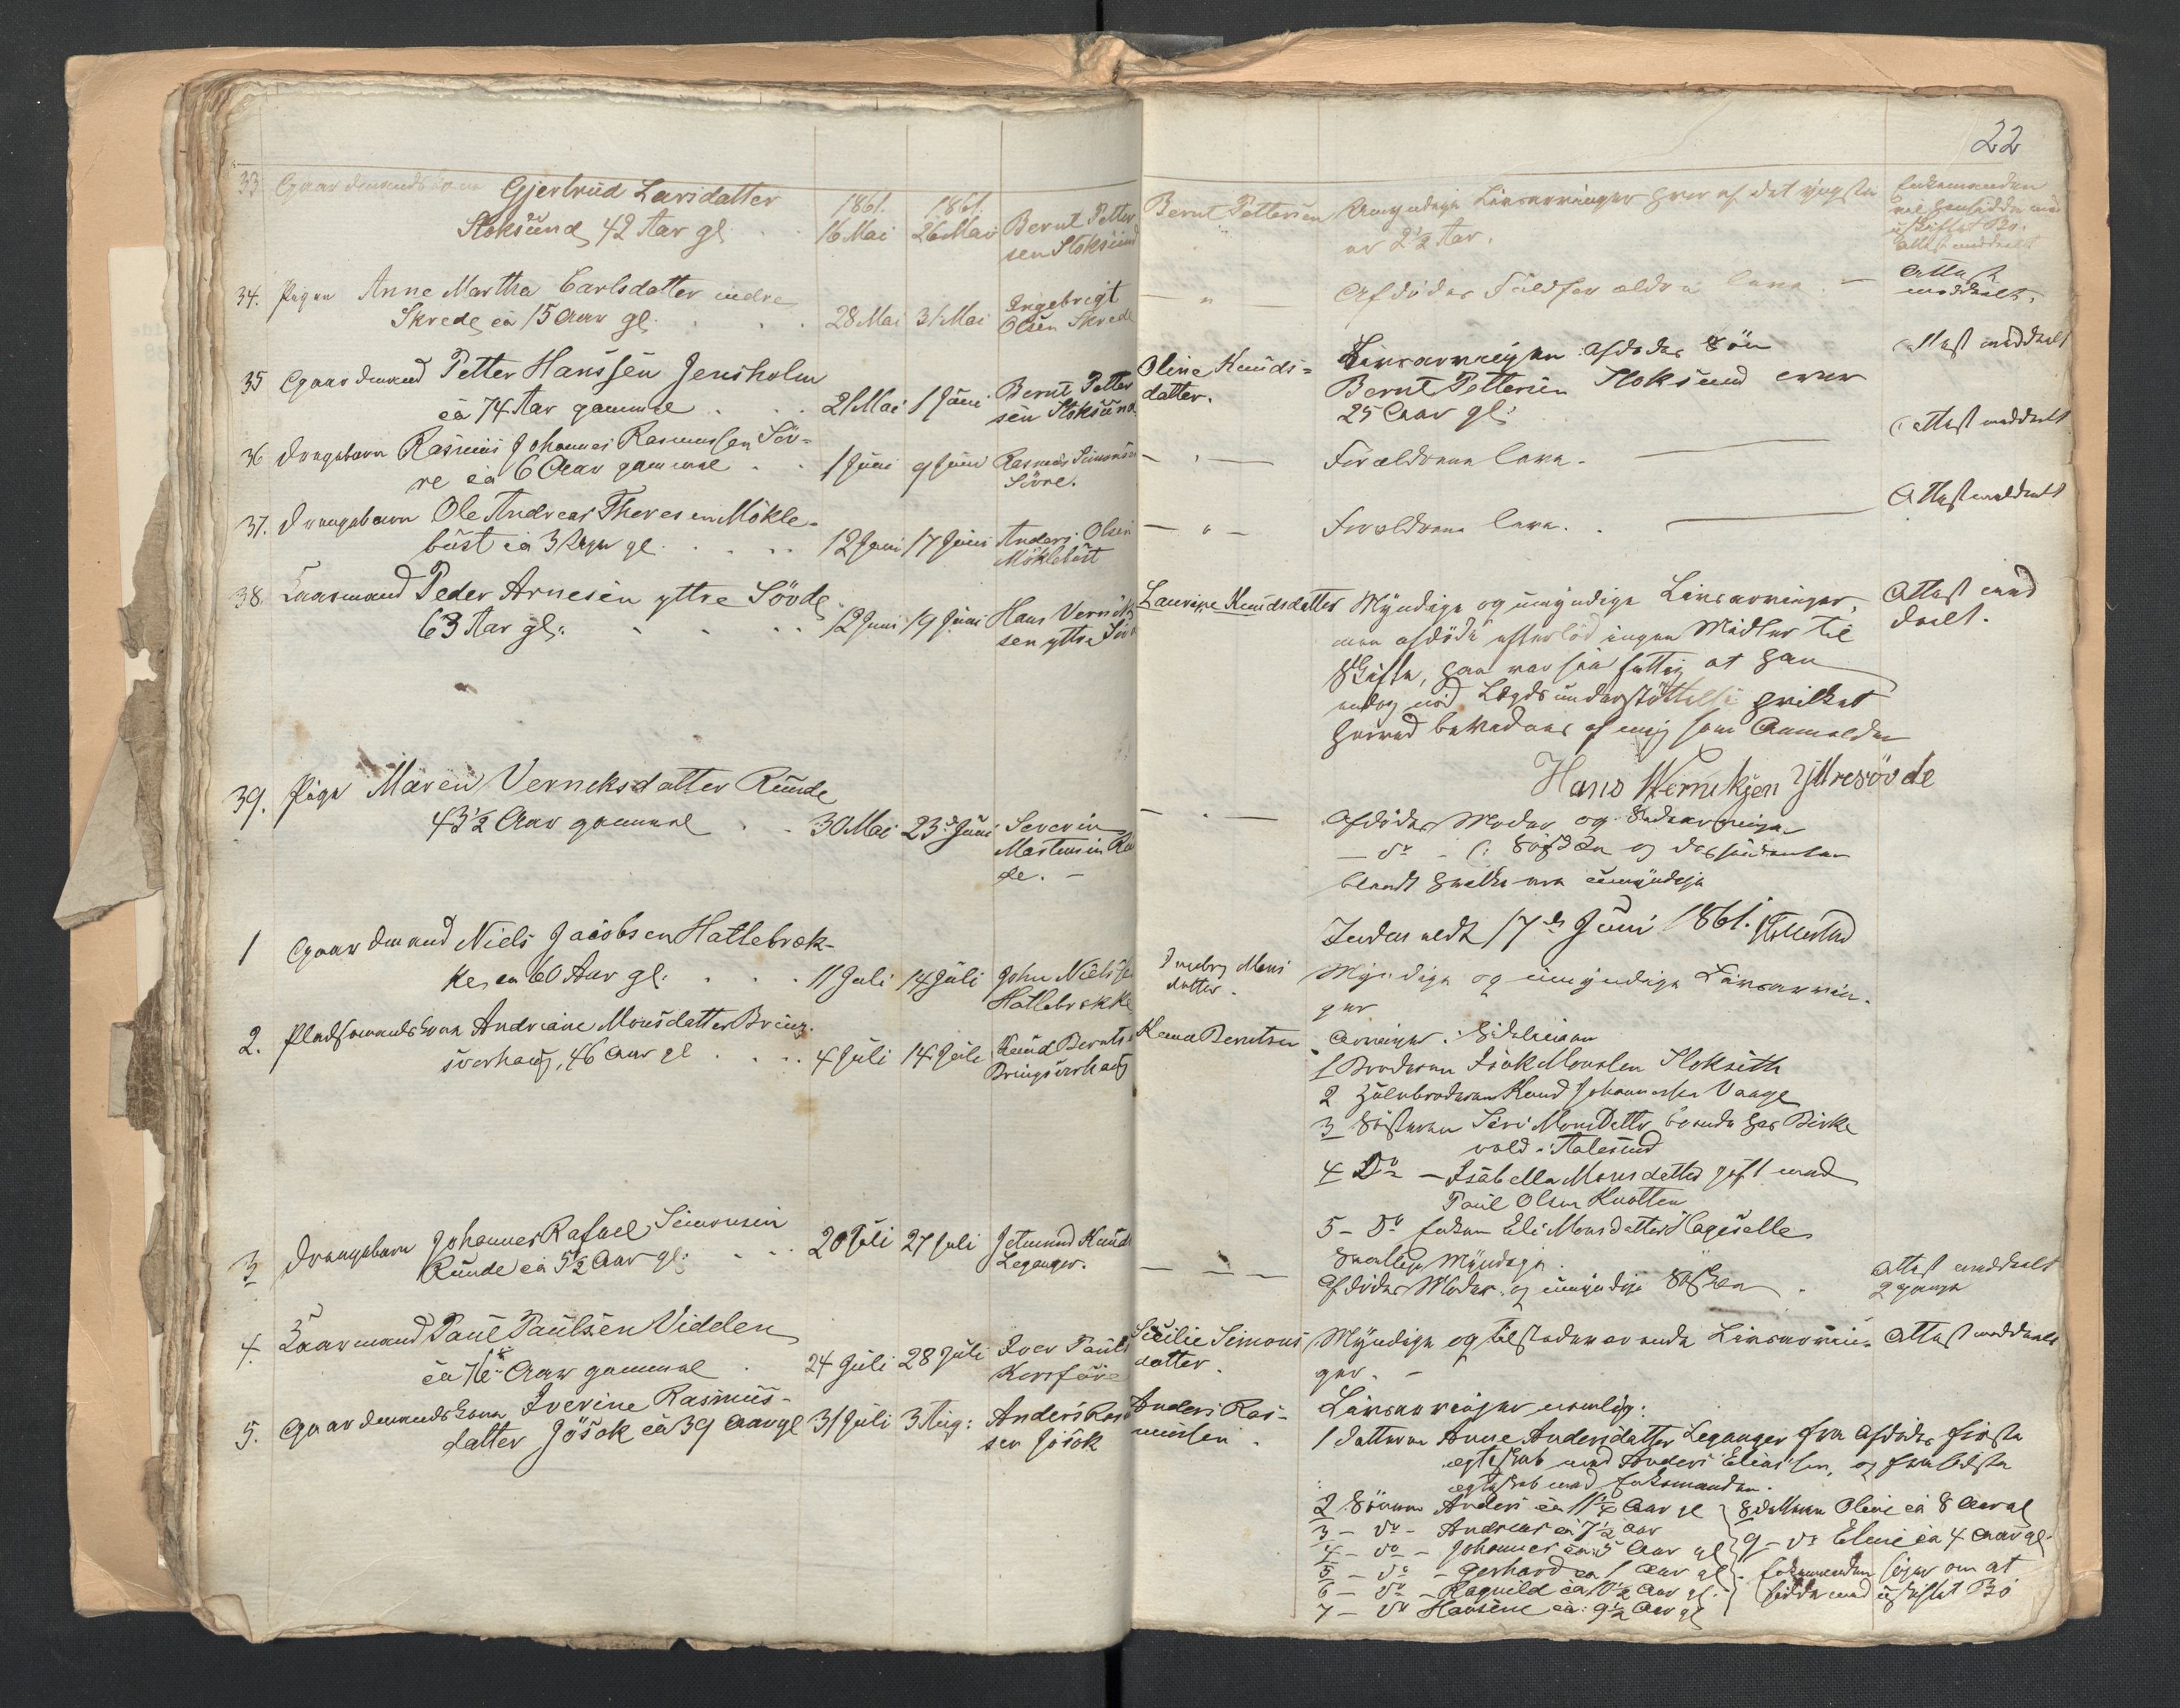 22
33. Gaardmandskone Gjertrud Larsdatter
Stoksund, 42 Aar gl.
1861. 16 Mai
1861. 26 Mai
Bernt Petter
sen Stoksund
Bernt Pettersen
Umyndige Livsarvinger hvoraf det yngste
er 2½ Aar.
Enkemanden
uskiftet Bo.
Attest meddeelt
34. Pigen Anne Martha Carlsdatter indre
Skrede, ca 15 Aar gl.
28 Mai
31 Mai
Ingebrigt
Olsen Skrede
— " —
Afdødes Fædforældre leve. —
Attest
meddeelt.
35 Gaardmand Petter Hanssen Jensholm
ca 74 Aar gammel . . .
21 Mai
1 Juni
Bernt Petter
sen Stoksund
Oline Knuds=
datter.
Livsarvingen afdødes Søn
Bernt Pettersen Stoksund over
25 Aar gl:
Attest meddeelt
36 Drengebarn Rasmus Johannes Rasmussen Söv-
re ca 6 Aar gammel . .
1 Juni
9 Juni
Rasmus Simonsen
Sövre.
— " —
Forældrene leve. —
Attest meddeelt
37. Drengebarn Ole Andreas Theresen Mökle-
bust ca 3 Uger gl. . . .
12 Juni
17 Juni
Anders Olsen
Möklebust
— " —
Forældrene leve. . —
Attest meddeelt
38. Kaarmand Peder Arnesen yttre Sövde
63 Aar gl: . . .
12 Juni
19 Juni
Hans Verniks
sen yttre Söv
Laurine Knudsdatter
Myndige og umyndige Livsarvinger,
men afdöde efterlod ingen Midler til
Skifte, han var saa fattig at han
endog nöd Lægdsunderstöttelse hvilket
herved bevidnes af mig som Anmelder
Hans Werniksen Yttresövde
Attest med
deelt.
39. Pige Maren Verneksdatter Runde
43½ Aar gammel . .
30 Mai
23de Juni
Severin
Martensen Run
de. —
— " —
Afdödes Moder og Sødskende
— do — (: Søskende og deres
blandt hvilke ere umyndige
Indmeldt 17de Juni 1861.
1 Gaardmand Niels Jacobsen Hatlebrek-
ke, ca 60 Aar gl: . . .
11 Juli
14 Juli
John Nielsse
Hatlebrekke
Ingeborg Mons
datter.
Myndige og umyndige Livsarvin-
ger
2. Pladsmandskone Andriane Monsdatter Bring-
sverhaug, 46 Aar gl . . .
4 Juli
14 Juli
Knud Bernts
Bringsverhaug
Knud Berntsen
Arvinger:
1 Broderen Isak Monssen Stokseth
2 Halvbroderen Knud Johannessen Vaage
3 Søsteren Siri Monsdatter boende hos Birke
vold i Aalesund
4 Do — Isabella Monsdatter gift med
Paul Olsen Knotten
5 – Do Enken Eli Monsdatter Hageselle
samtlige Myndige.
3 Drengebarn Johannes Rafael Simonsen
Runde ca 5½ Aar gl: . . .
20 Juli
27 Juli
Jetmund Knuds
Leganger.
— — —
Afdödes Moder og umyndige Søskende .
Attest meddeelt
2 gange
4. Kaarmand Paul Paulsen Vidden
ca 76 Aar gammel .
24 Juli
28 Juli
Iver Pauls
Korsfure
Sicilie Simons
datter.
Myndige og tilstedeværende Livsarvin-
ger. —
Attest meddeelt
5. Gaardmandskone Iverine Rasmus-
datter Jösok ca 39 Aar gl
31 Juli
3 Aug:
Anders Ras
sen Jösok
Anders Ras-
mussen .
Livsarvinger nemlig:
1 Datteren Anne Andersdatter Leganger fra Afdödes første
ægteskab med Anders Eliassen, og fra sidste
ægteskab med Enkemanden.
2 Sönnen Anders ca 11½ Aar gl
3 – do – Andreas ca 7½ Aar
4 – do – Johannes ca 5 Aar gl
5 – do – Gerhard ca 1 Aar gl
6 – do – Ragnild ca 10½ Aar gl
7 – do Hansine ca: 9½ Aar gl
8 datteren Oline ca 8 Aar gl
9 – do Eline ca 4 Aar gl.
Enkemanden søger om at
sidde med uskiftet Bo